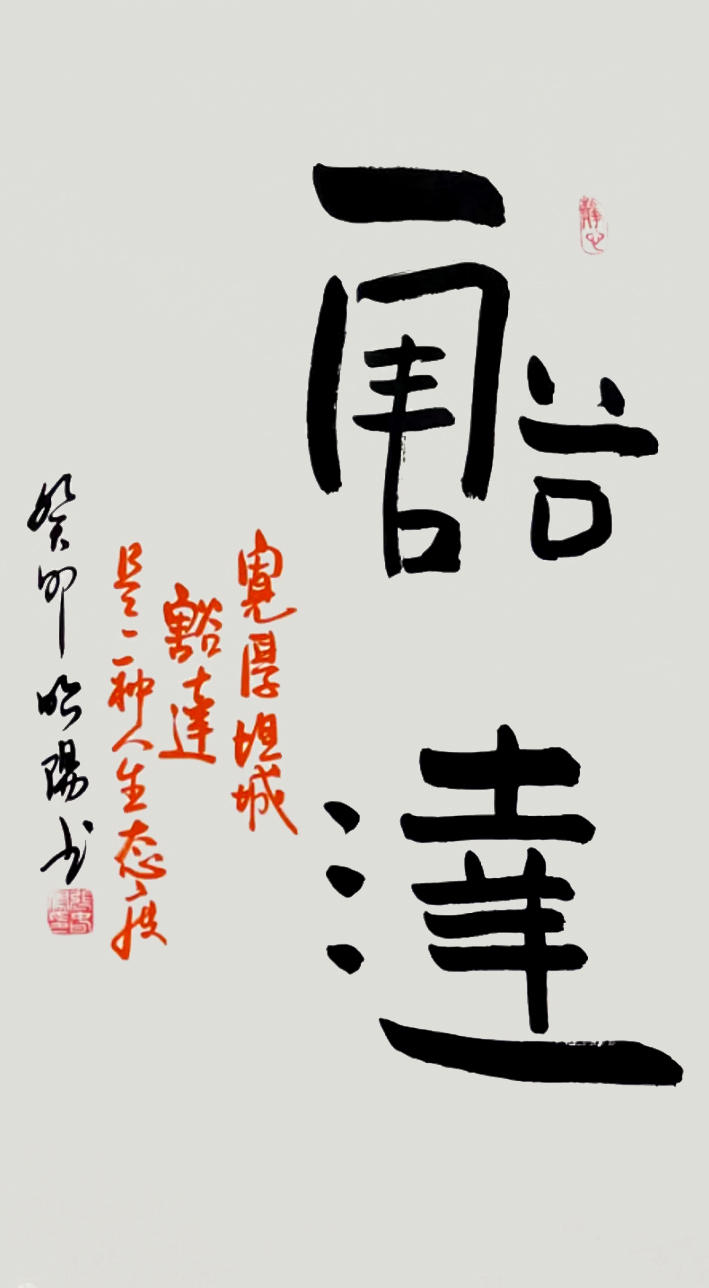 豁達
靜心
寬厚坦城
豁達
是一种人生态度
癸卯 昭陽书